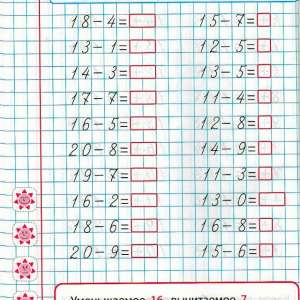 18-4= 15-7=
13-1= 12-5=
14-3= 13-5=
17-7= 11-4=
16-5= 12-8=
20-8= 14-9=
19-7= 11-3=
16-2= 13-0=
18-6= 16-8=
20-9= 15-6=
Уменьшаемое 16, вычитаемое 7